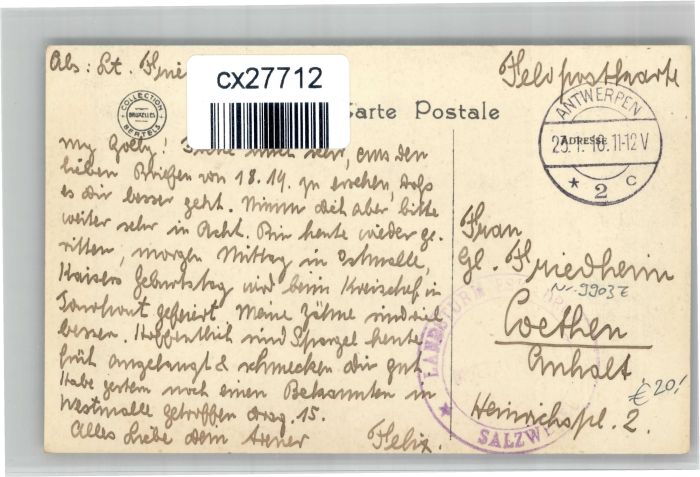 Abs: Lt. Frie
cx27712
Feldpostkarte
COLLECTION
BRUXELLES
BERTELS
Carte Postale
ANTWERPEN
ADRESSE
11-12 V
* 2 C
my Golly! Freue mich sehr, aus den
lieben Briefen von 18. 19. zu ersehen, daß
es dir besser geht. Nimm dich aber bitte
weiter sehr in Acht. Bin heute wieder ge-
ritten, morgen Mittag in Ostmalle,
Kaisers Geburtstag wird beim Kreischef in
Turnhout gefeiert. Meine Zähne sind viel
besser. Hoffentlich sind Spargel heute
früh angelangt & schmecken dir gut.
Habe gestern noch einen Bekannten in
Westmalle getroffen 15.
Alles Liebe dein treuer Felix.
Frau
Gl. Friedheim
Nr. 9903Z
Coethen
Anhalt
€ 20,-
Heinrichspl. 2.
LANDSTURM
SALZW